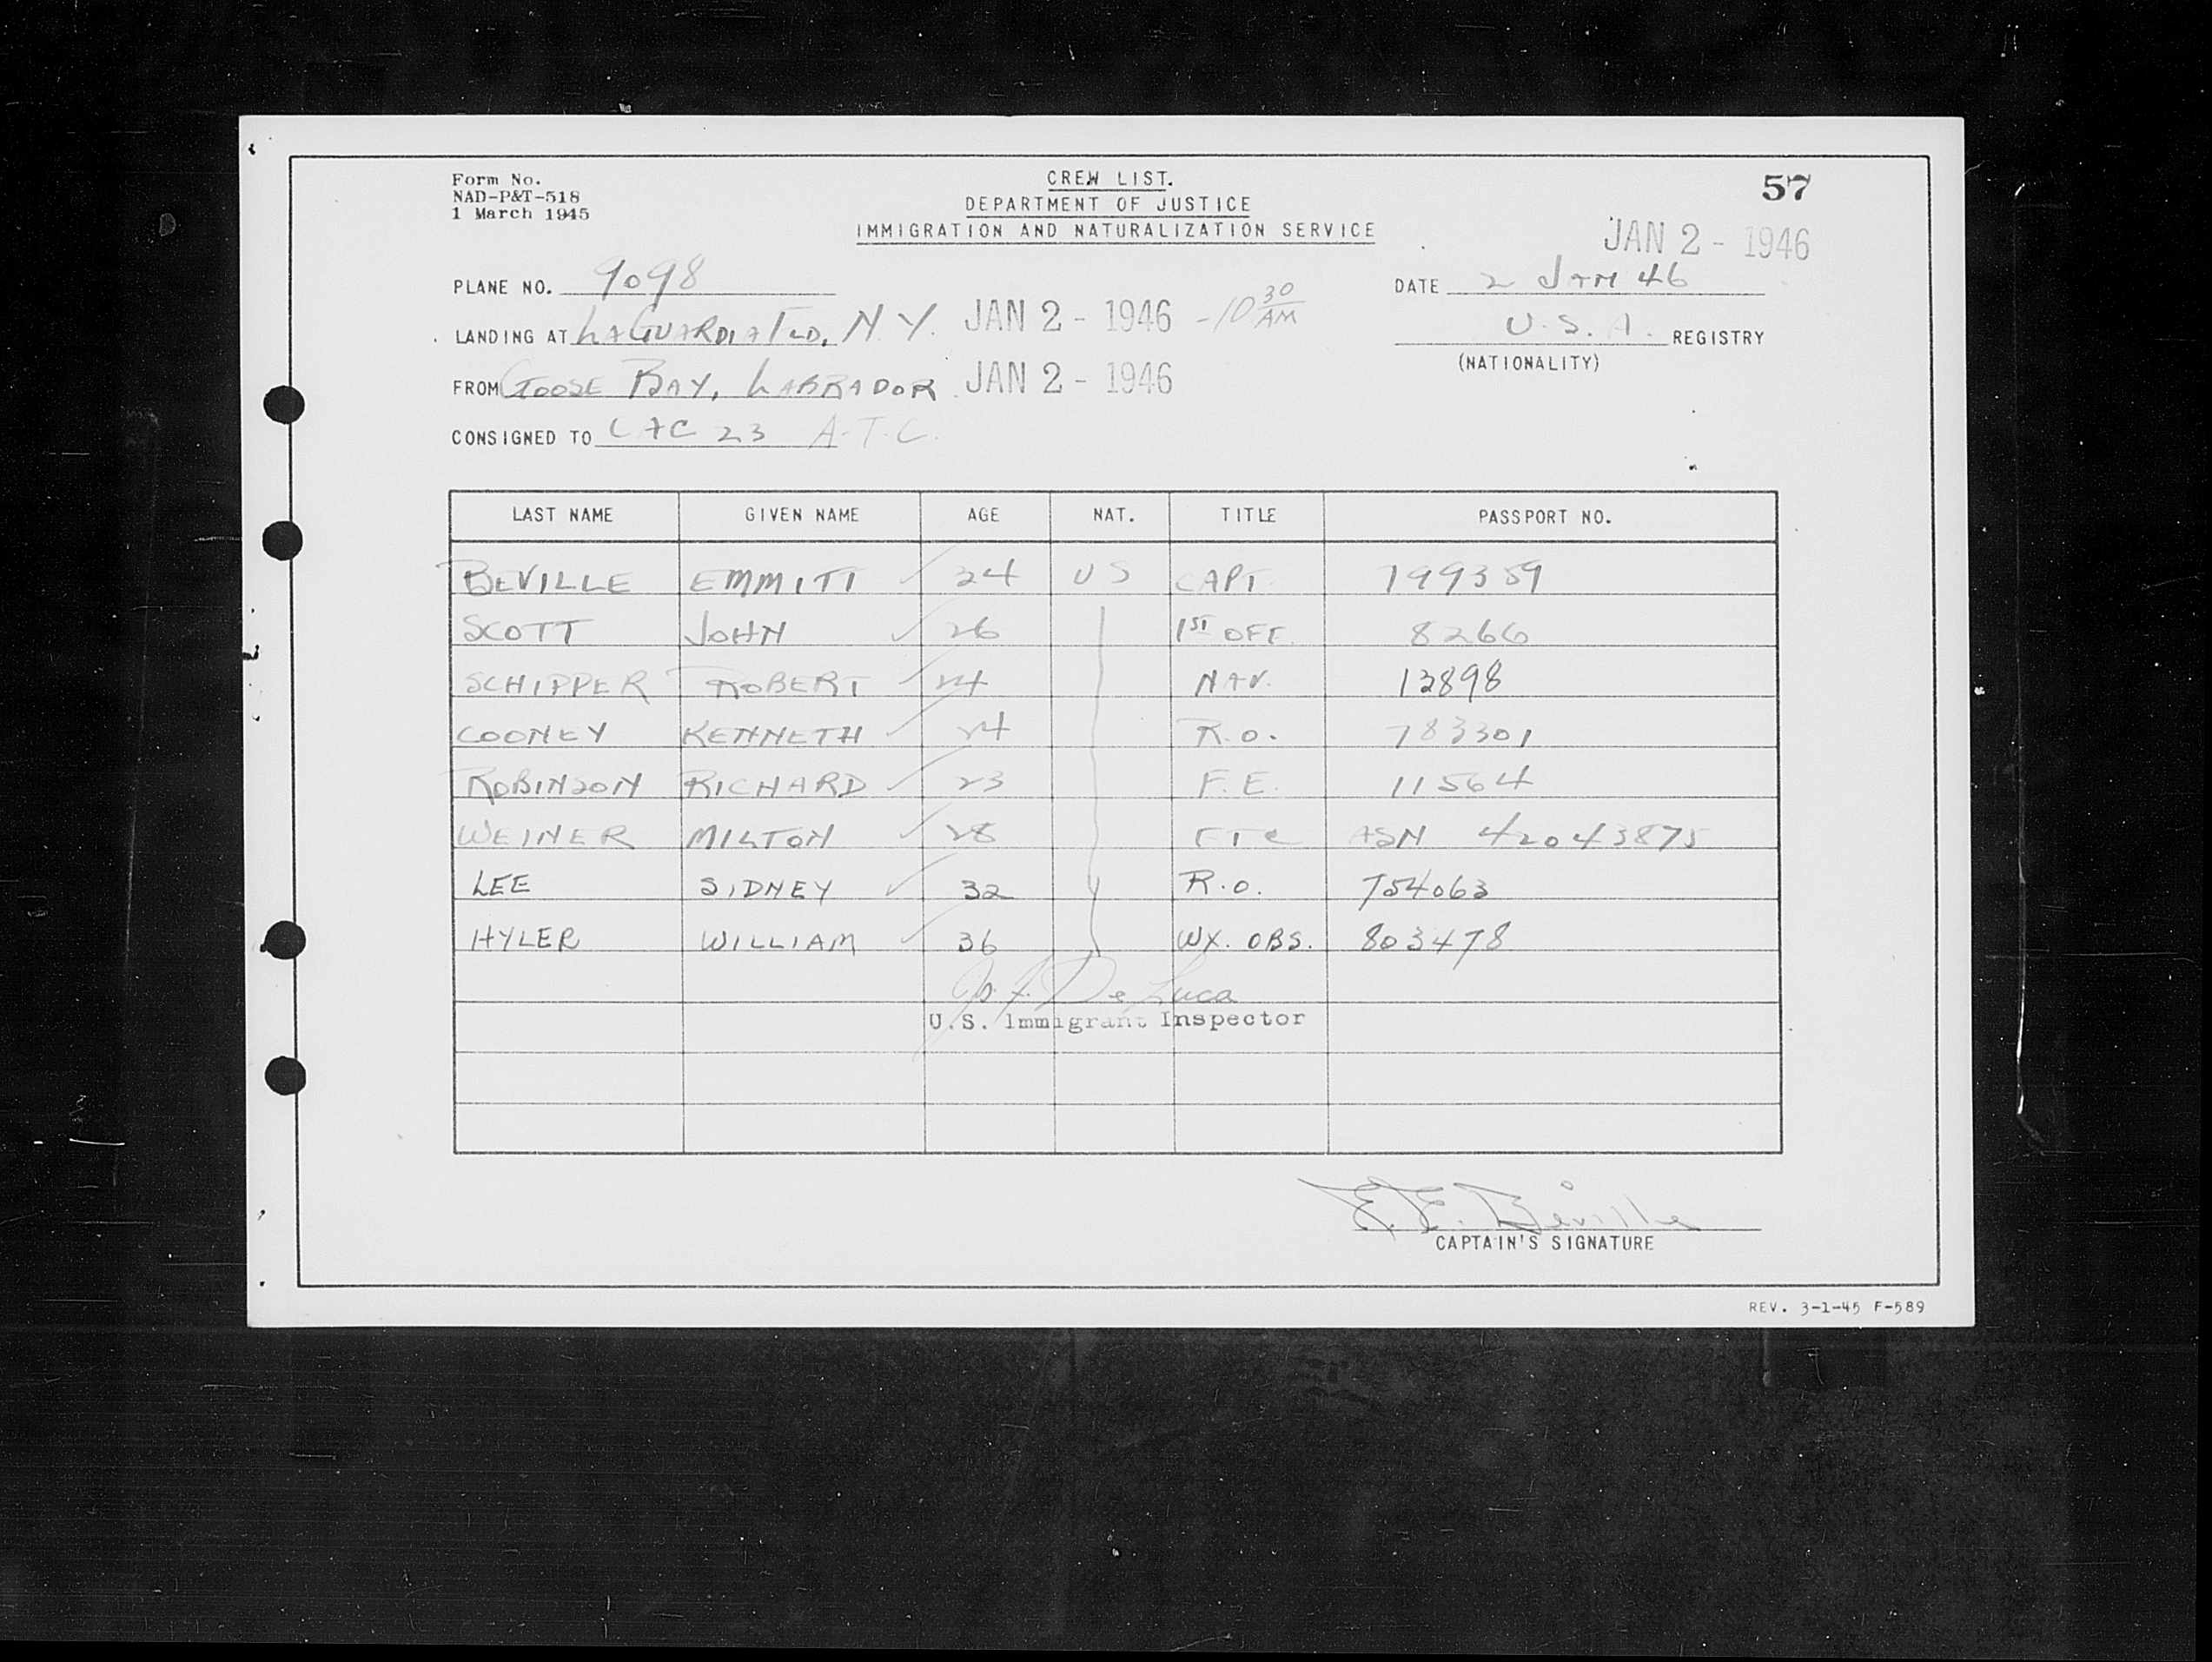 Form No.
NAD-P&T-518
1 March 1945
CREW LIST.
DEPARTMENT OF JUSTICE
IMMIGRATION AND NATURALIZATION SERVICE
57
JAN 2 - 1946
PLANE NO. 9098
DATE 2 JAN 46
LANDING AT LAGUARDIA FLD, N.Y. JAN 2 - 1946 -10 30 AM
U.S.A. REGISTRY
(NATIONALITY)
FROM GOOSE BAY, LABRADOR JAN 2 - 1946
CONSIGNED TO 23 A.T.C.
LAST NAME GIVEN NAME AGE NAT. TITLE PASSPORT NO.
BEVILLE EMMITT 24 US CAPT 199359
SCOTT JOHN 26 1ST OFF. 8266
SCHIPPER ROBERT 24 NAV. 12898
COONEY KENNETH 24 R.O. 783301
ROBINSON RICHARD 23 F.E. 11564
WEINER MILTON 28 FTC ASN 42043875
LEE SIDNEY 32 R.O. 754063
HYLER WILLIAM 36 WX. OBS. 803478
De Luca
U.S. Immigrant Inspector
E.E. Beville
CAPTAIN'S SIGNATURE
REV. 3-1-45 F-589